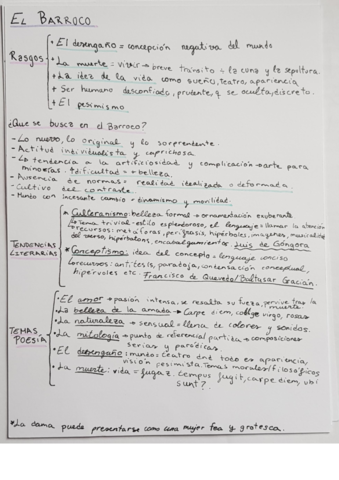 EL BARROCO
RASGOS
+ El desengaño = concepción negativa del mundo
+ La muerte = vivir → breve tránsito + la cuna y la sepultura.
+ La idea de la vida como sueño, teatro, apariencia
+ Ser humano desconfiado, prudente, q se oculta, discreto.
+ El pesimismo
¿Que se busca en el Barroco?
- Lo nuevo, lo original y lo sorprendente.
- Actitud individualista y caprichosa
- La tendencia a la artificiosidad y complicación → arte para
minorías. +dificultad = +belleza.
- Ausencia de normas = realidad idealizada o deformada.
- Cultivo del contraste
- Mundo con incesante cambio - dinamismo y movilidad.
TENDENCIAS LITERARIAS
Culteranismo: belleza formal → ornamentación exuberante
Tema trivial - estilo esplendoroso, el lenguaje llamar la atención
recursos: metáforas, perífrasis, hipérboles, imágenes, musicalidad
del verso, hipérbatons, encabalgamiento. Luis de Góngora
Conceptismo: idea del concepto → lenguaje conciso
recursos: antítesis, paradoja, condensación conceptual,
hipérboles etc. Francisco de Quevedo/Baltasar Gracián.
TEMAS POESÍA
El amor → pasión intensa, se resalta su fuerza, pervive tras la
La belleza de la amada → Carpe diem, collige virgo, rosas
La naturaleza → sensual = llena de colores y sonidos.
La mitología → punto de referencial partida → composiciones
serias y paródicas
El desengaño: mundo: teatro dnd todo es apariencia,
visión pesimista. Temas morales, filosóficos
La muerte: vida = fugaz. tempus fugit, carpe diem, ubi
sunt?.
*La dama puede presentarse como una mujer fea y grotesca.